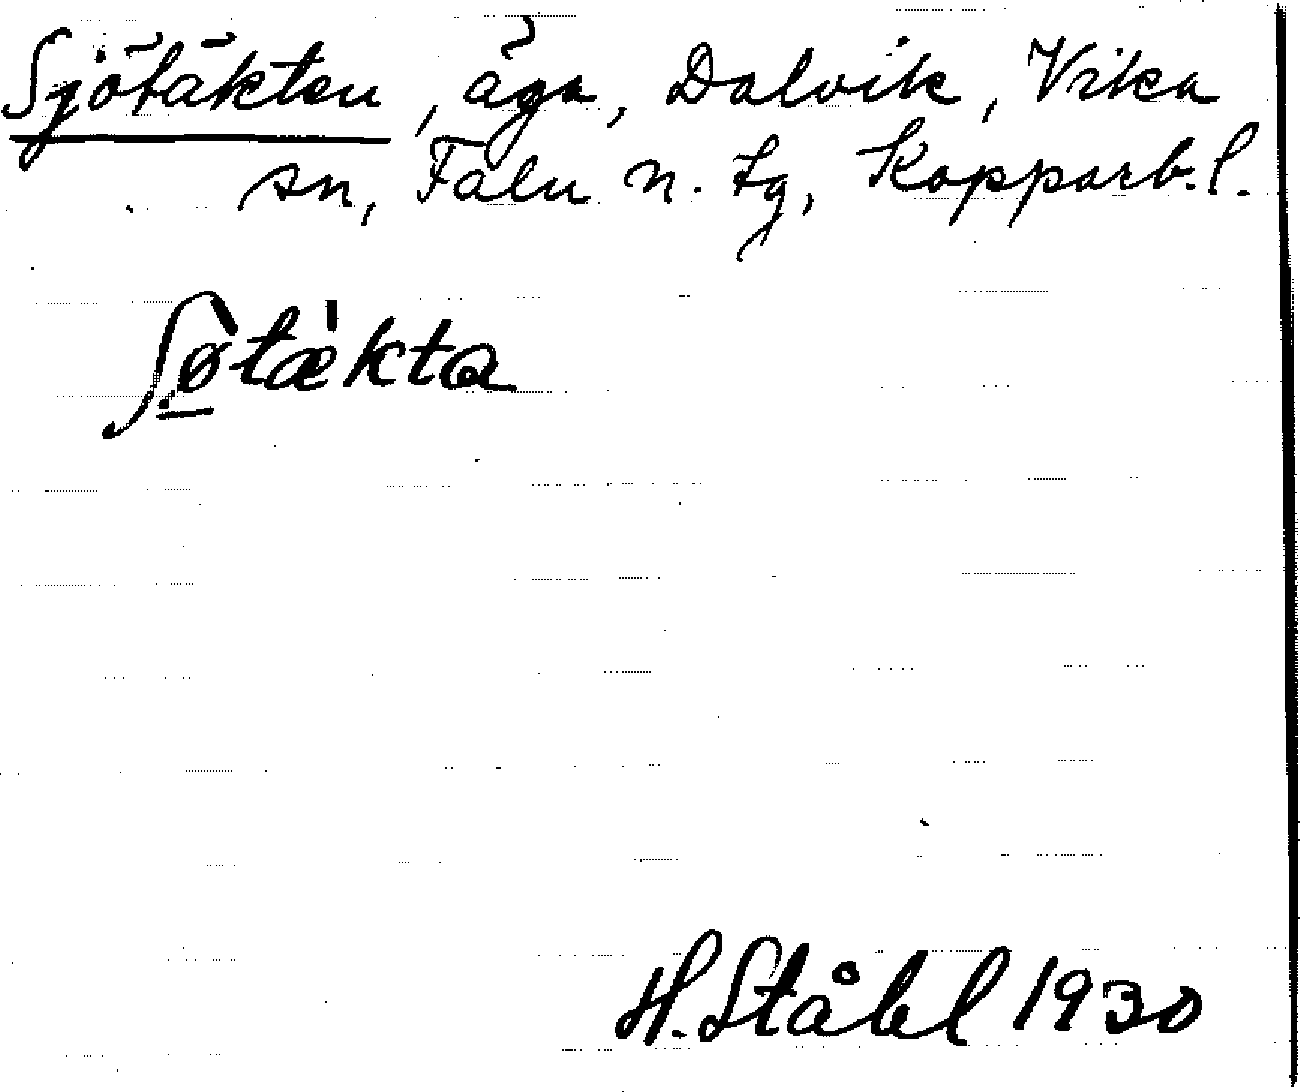 Sjötäkten, äga, Dalvik, Vika
sn, Falu n. tg, Kopparb. l.
ʃø̀tæ̀kta
H. Ståhl 1930